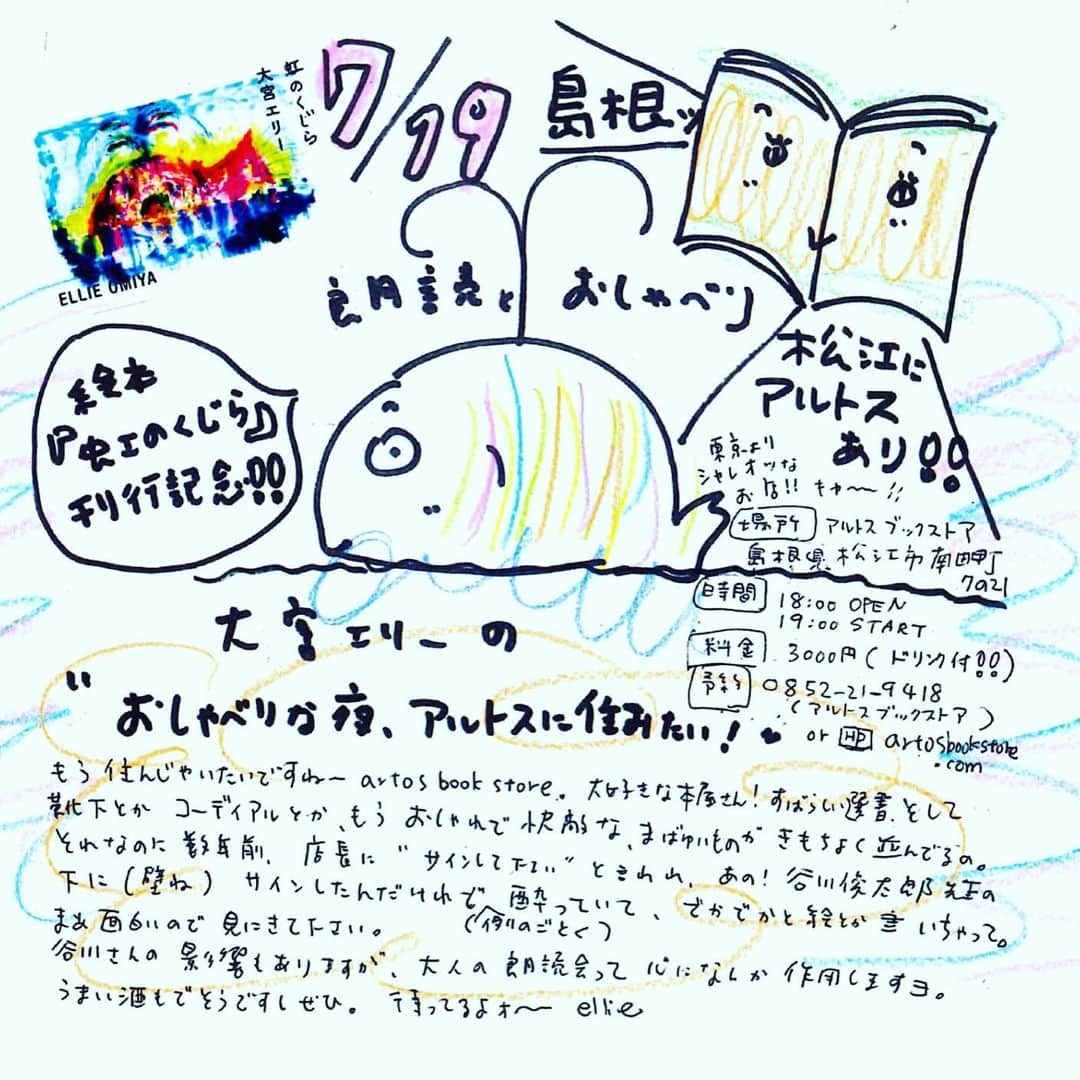 虹のくじら
大宮エリー
ELLIE OMIYA
7/19
島根ッ
朗読と
おしゃべり
絵本
『虹のくじら』
刊行記念!!
松江に
アルトス
あり!!
東京より
シャレオツな
お店!! キャ〜!!
場所 アルトスブックストア
島根県松江市南田町
7021
時間 18:00 OPEN
19:00 START
料金 3000円(ドリンク付!!)
予約 0852-21-9418
(アルトスブックストア)
or HP artosbookstore
.com
大宮エリーの
"おしゃべりな夜、アルトスに住みたい!
もう住んじゃいたいですね〜 artos book store。大好きな本屋さん!すばらしい選書、そして
靴下とか コーディアルとか、もう おしゃれで快適な、まばゆいものが きもちよく並んでるの。
それなのに 数年前、店長に "サインして下さい" と言われ、あの!谷川俊太郎先生の
下に(壁ね) サインしたんだけれど、酔っていて、でかでかと絵とか書いちゃって。
(例のごとく)
まあ面白いので見にきて下さい。
谷川さんの影響もありますが、大人の朗読会って 心になんか 作用しますヨ。
うまい酒もでそうですしぜひ。 待ってるよォ〜 ellie